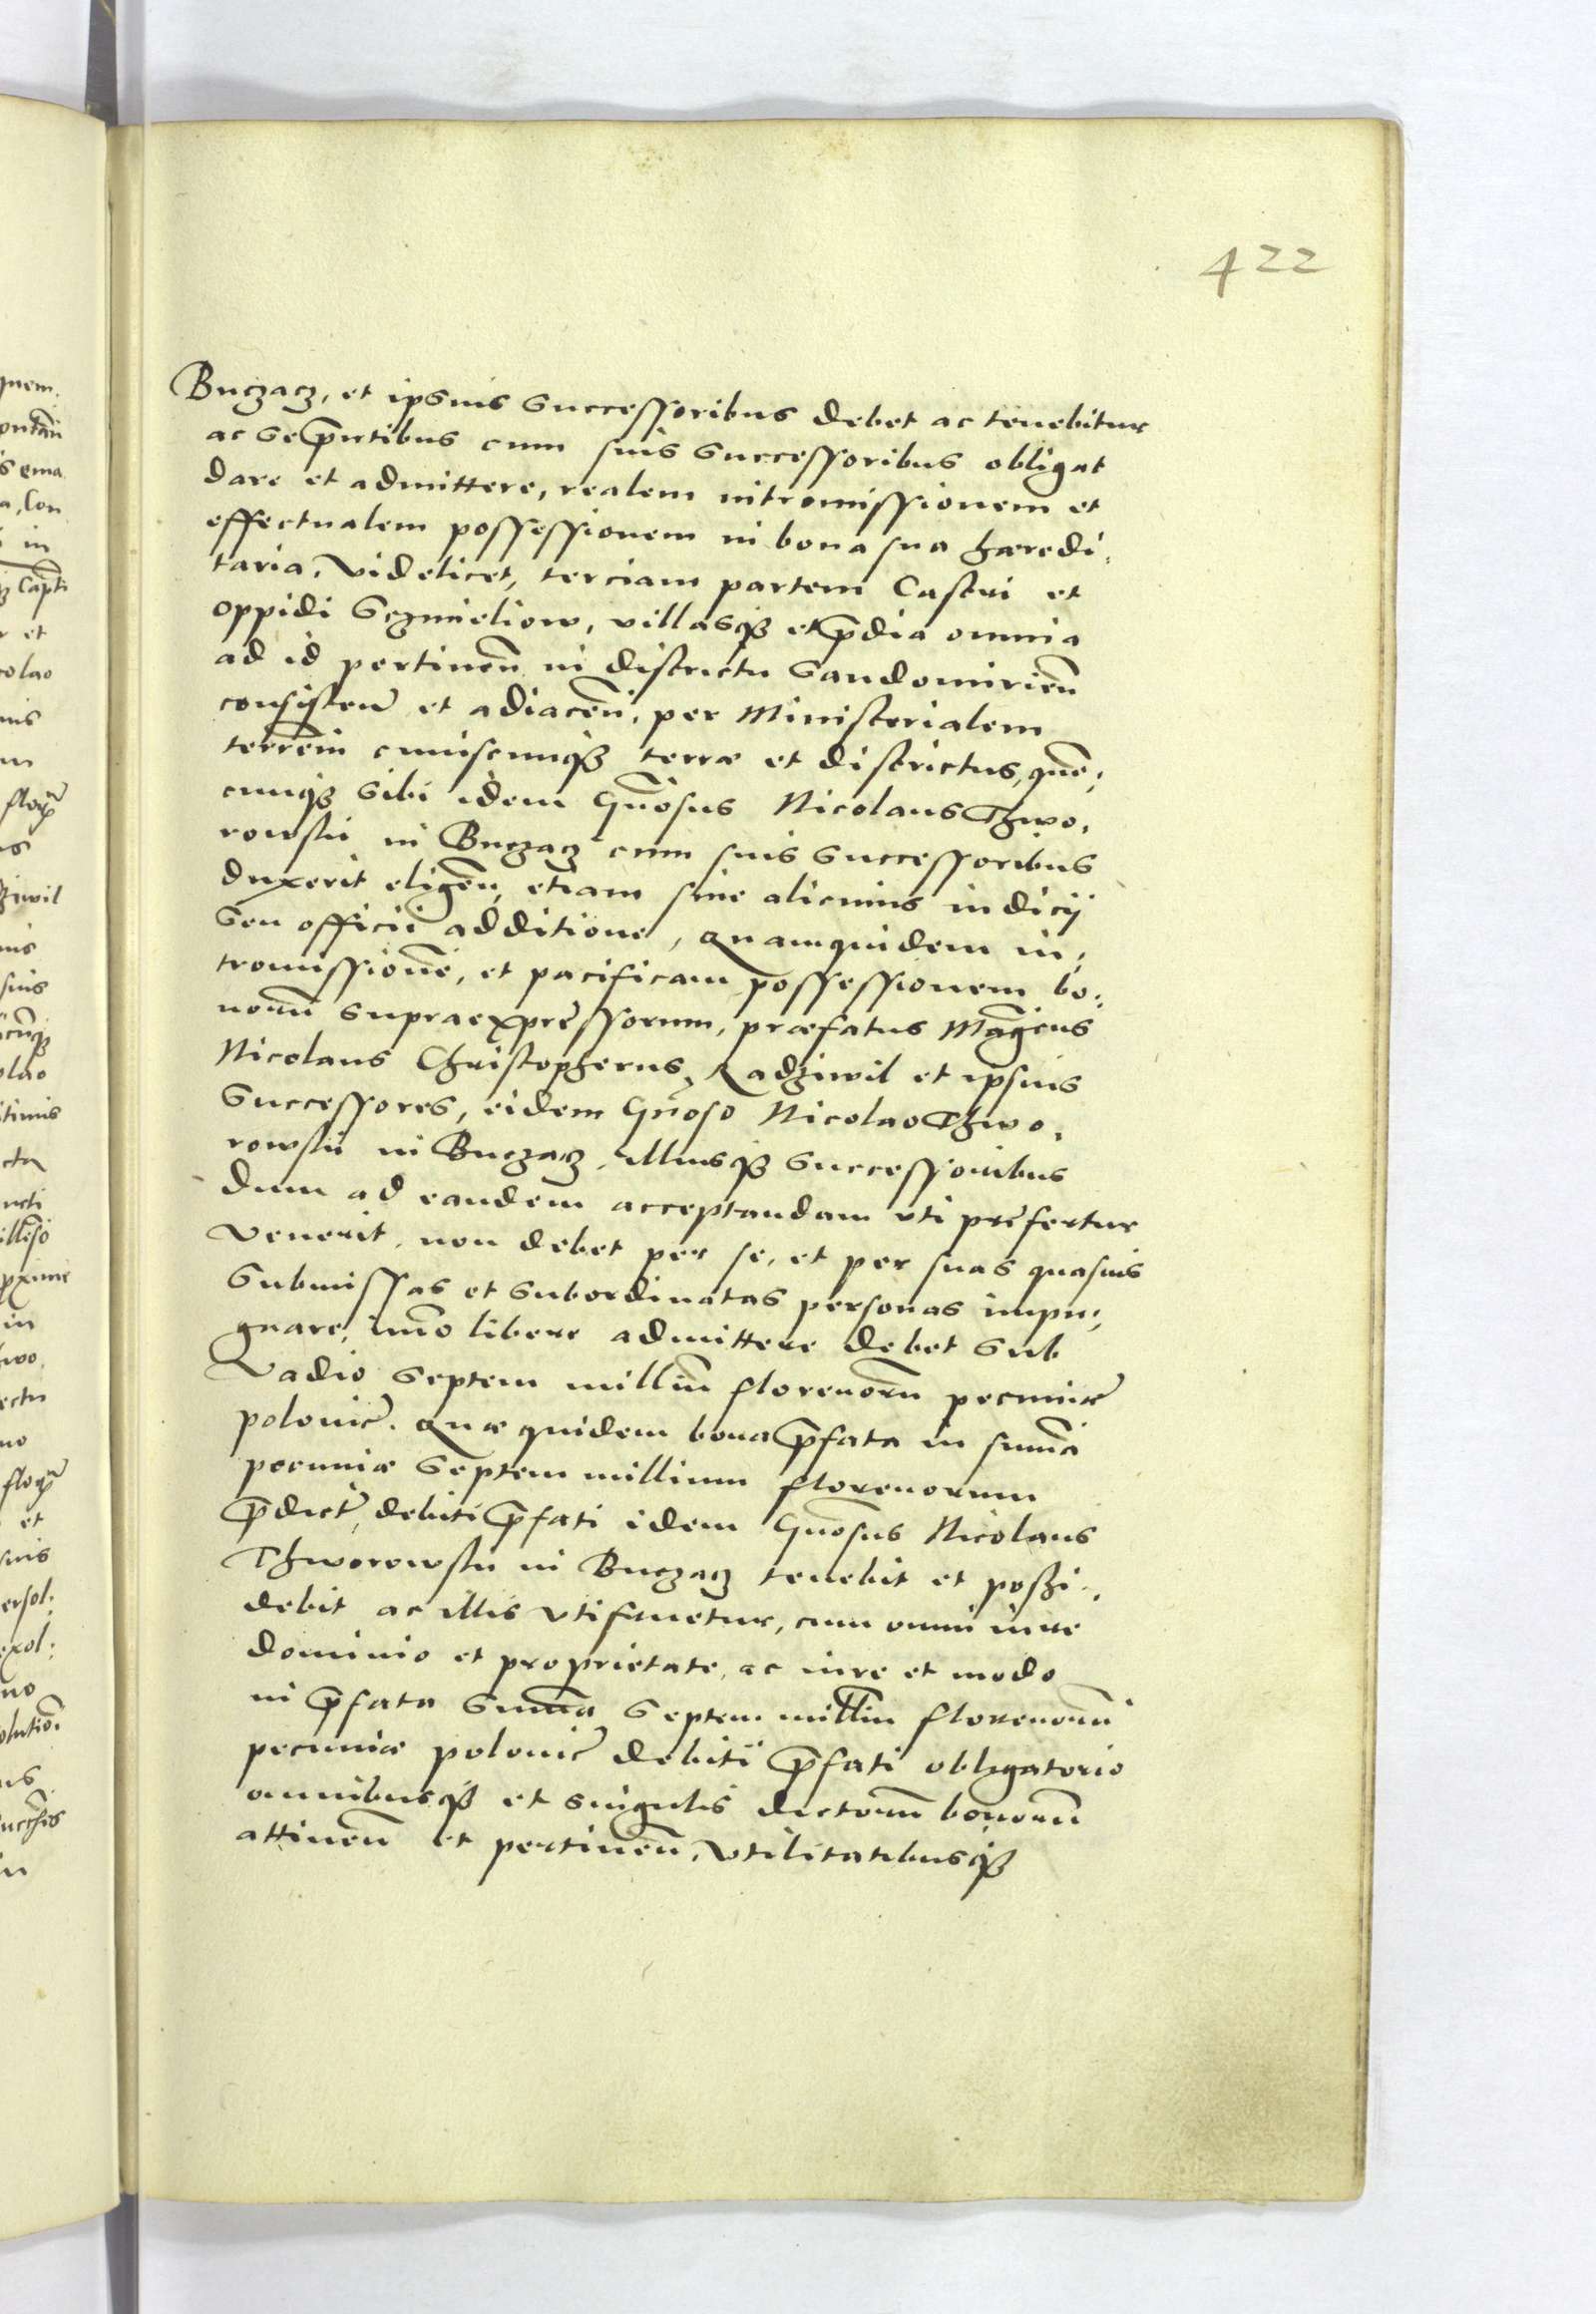 422
Buczacz, et ipsius Successoribus debet ac tenebitur
ac se p̃ntibus cum suis Successoribus obligat
dare et admittere, realem intromissionem et
effectualem possessionem in bona sua haeredi,
taria, Videlicet, terciam partem Castri et
oppidi Sczmieliow, villasq₃ et p̃dia omnia
ad id pertineñ in districtu Sandomirieñ
consisteñ et adiaceñ, per Ministerialem
terreñ cuiuscunq₃ terrae et districtus, quẽ,
cunq₃ sibi idem Gñosus Nicolaus Thwo,
rowski in Buczacz cum suis Successoribus
duxerit eligeñ, etiam sine alicuius iudicij
seu officii additione, Quamquidem in,
tromissionẽ, et pacificam possessionem bo,
norũ supraexpressorum, praefatus Magcus
Nicolaus Christopherus Radziwil et ipsius
Successores, eidem Gñoso Nicolao Thwo,
rowski in Buczacz, illiusq₃ Successoribus
dum ad eandem acceptandam uti prefertur
Venerit, non debet per se, et per suas quasuis
Submissas et subordinatas personas impu,
gnare, imo libere admittere debet sub
Vadio Septem milliũ florenorũ pecuniae
polonic̃. Quae quidem bona p̃fata in sum̃a
pecuniae Septem millium florenorum
p̃dict̃, debiti p̃fati idem Gñosus Nicolaus
Thworowski in Buczacz tenebit et possi,
debit ac illis utifruetur, cum omni iure
dominio et proprietate, ac iure et modo
in p̃fata Sum̃a Septem milliũ florenorũ
pecuniae polonic̃ debiti p̃fati obligatorio
omnibusq₃ et singulis dictorũ bonorũ
attineñ et pertineñ, Utilitatibusq₃